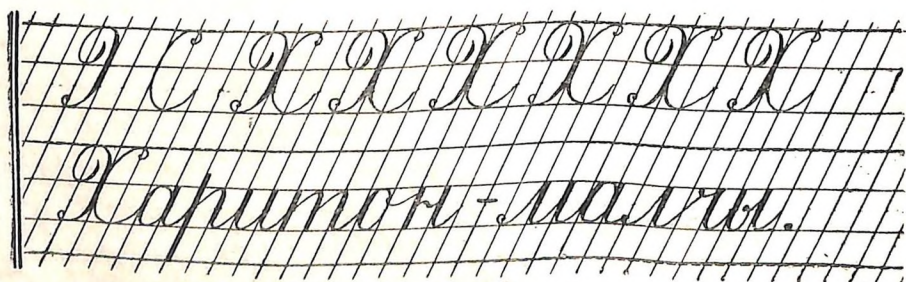 Х С Х Х Х Х Х Х
Харитон - малчы.